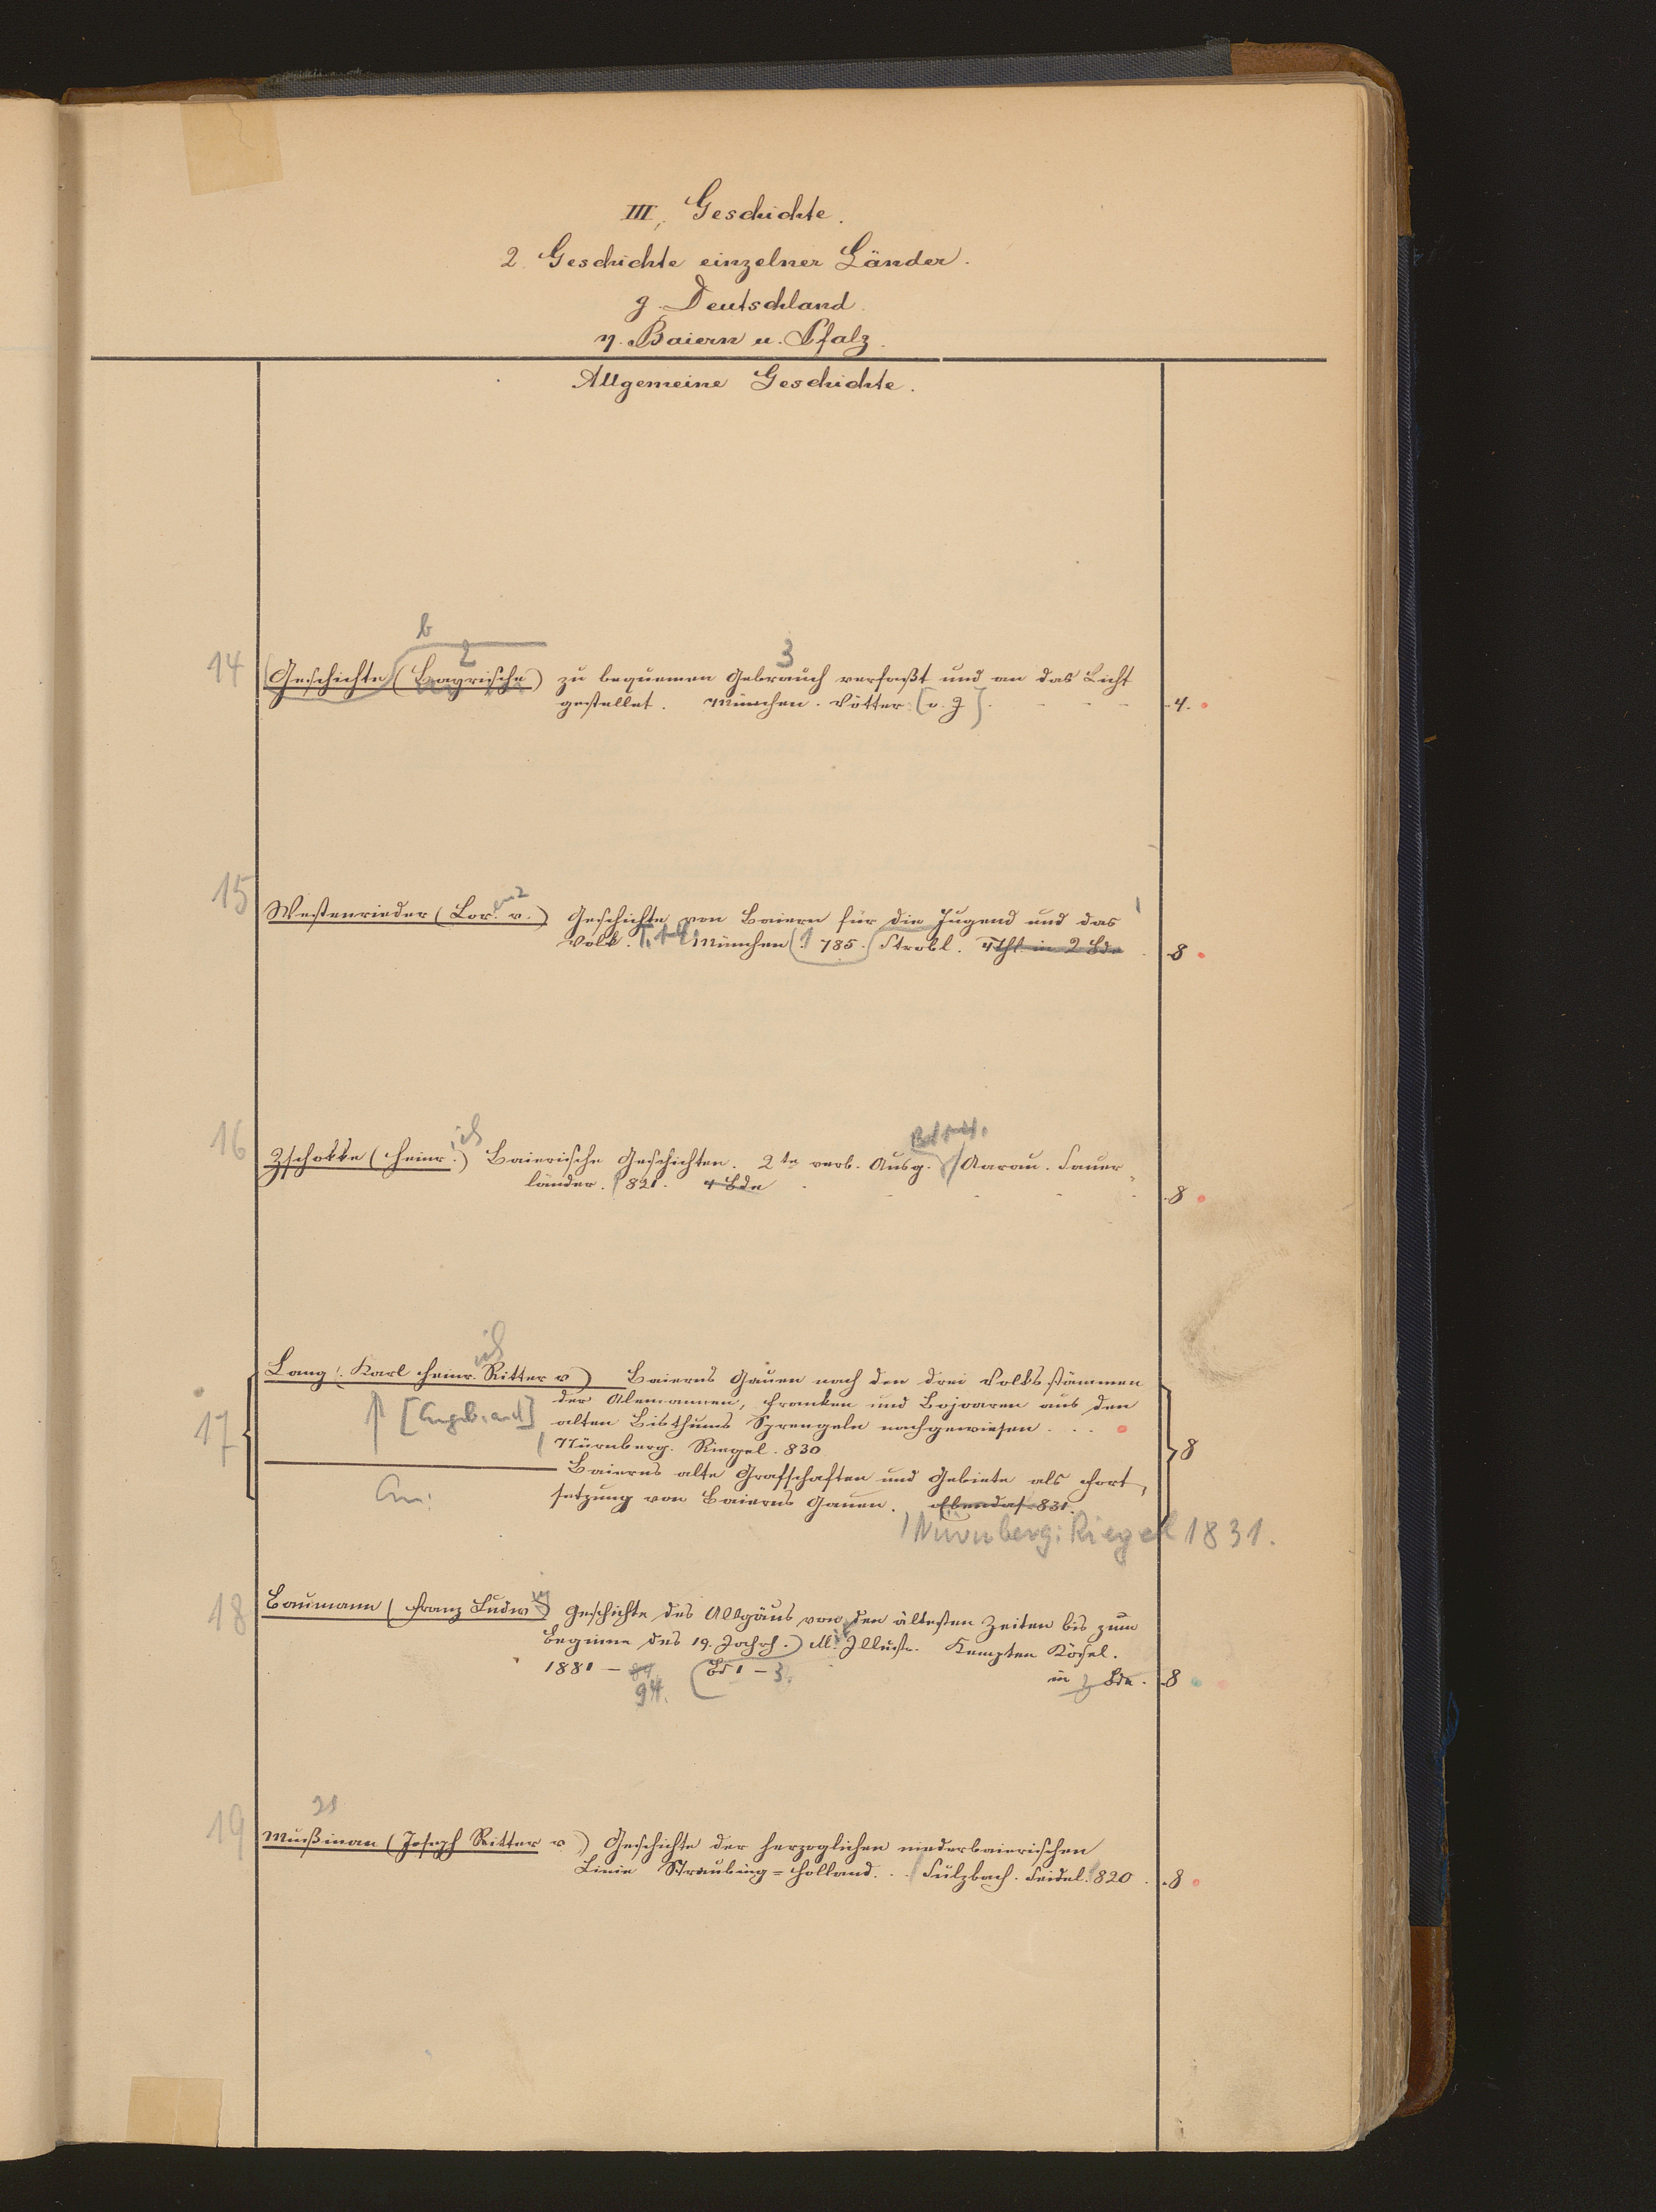 III, Geschichte.
2. Geschichte einzelner Länder.
g. Deutschland.
η. Baiern u. Pfalz.
Allgemeine Geschichte.
b
2
3
14 Geschichte (Bayrische) zu bequemen Gebrauch verfaßt und an das Licht
gestellet. München. Vötter. [o. J]. 4.
15 Westenrieder (Lor. v.) Geschichte von Baiern für die Jugend und das
Volk. T. 1-4. München 1785. Strobl. 4 Thl. in 2 Bde 8
16 Zschokke (Heinrich) Baierische Geschichten. 2te verb. Ausg. Bd 1-4. Aarau. Sauer-
länder. 1821. 4 Bde 8
17 Lang (Karl Heinrich Ritter v) Baierns Gauen nach den drei Volksstämmen
der Alemannen, Franken und Bojoaren aus den
[Angeb. and] alten Bisthums Sprengeln nachgewiesen...
Nürnberg. Riegel. 830 8
Baierns alte Grafschaften und Gebiete als Fort-
An: setzung von Baierns Gauen. Ebendas. 831.
Nürnberg: Riegel 1831.
18 Baumann (Franz Ludwig) Geschichte des Allgäus von den ältesten Zeiten bis zum
Beginne des 19. Jahrh. Mit Illustr. Kempten Kösel.
1881 - 84 Bd 1-3. in Bde. 8
94.
19 Mußinan (Joseph Ritter v.) Geschichte der herzoglichen niederbaierischen
Linie Straubing=Holland... Sulzbach. Seidel. 1820. 8